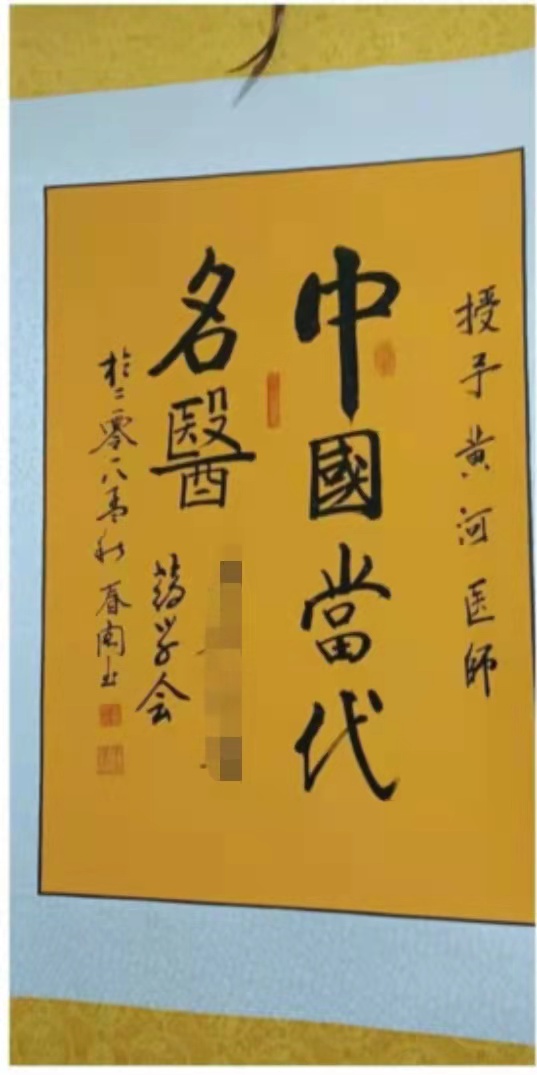 授予黄河医师
中國當代
名醫
药学会
於二零一八年秋春南书